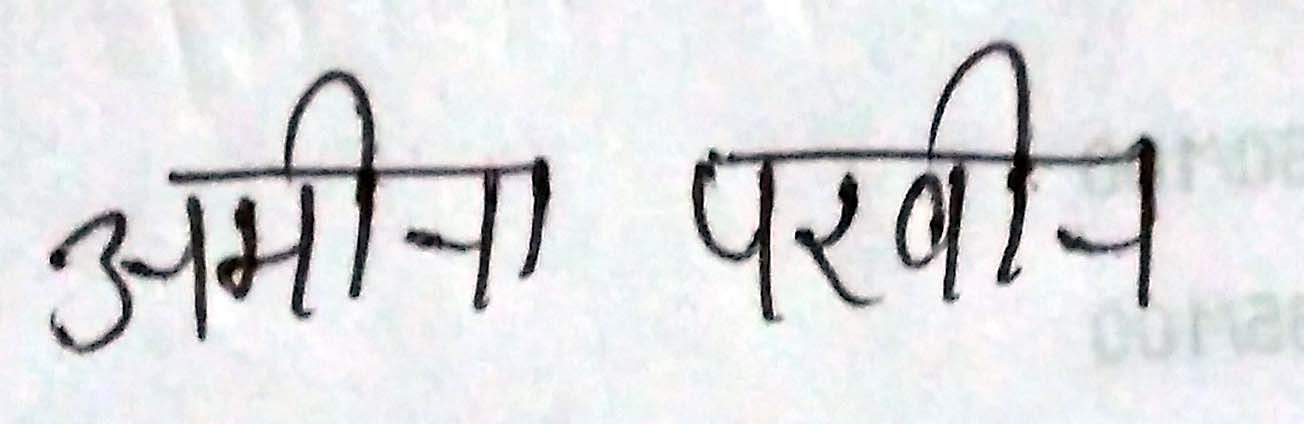 अमीना परवीन